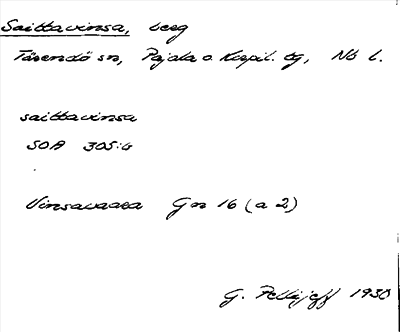 Saittavinsa, berg
Tärendö sn, Pajala o Korpil. tg, Nb l.
saittavinsa
SOA 305:6
Vinsavaara Gn 16 (a 2)
G. Pellijeff 1930